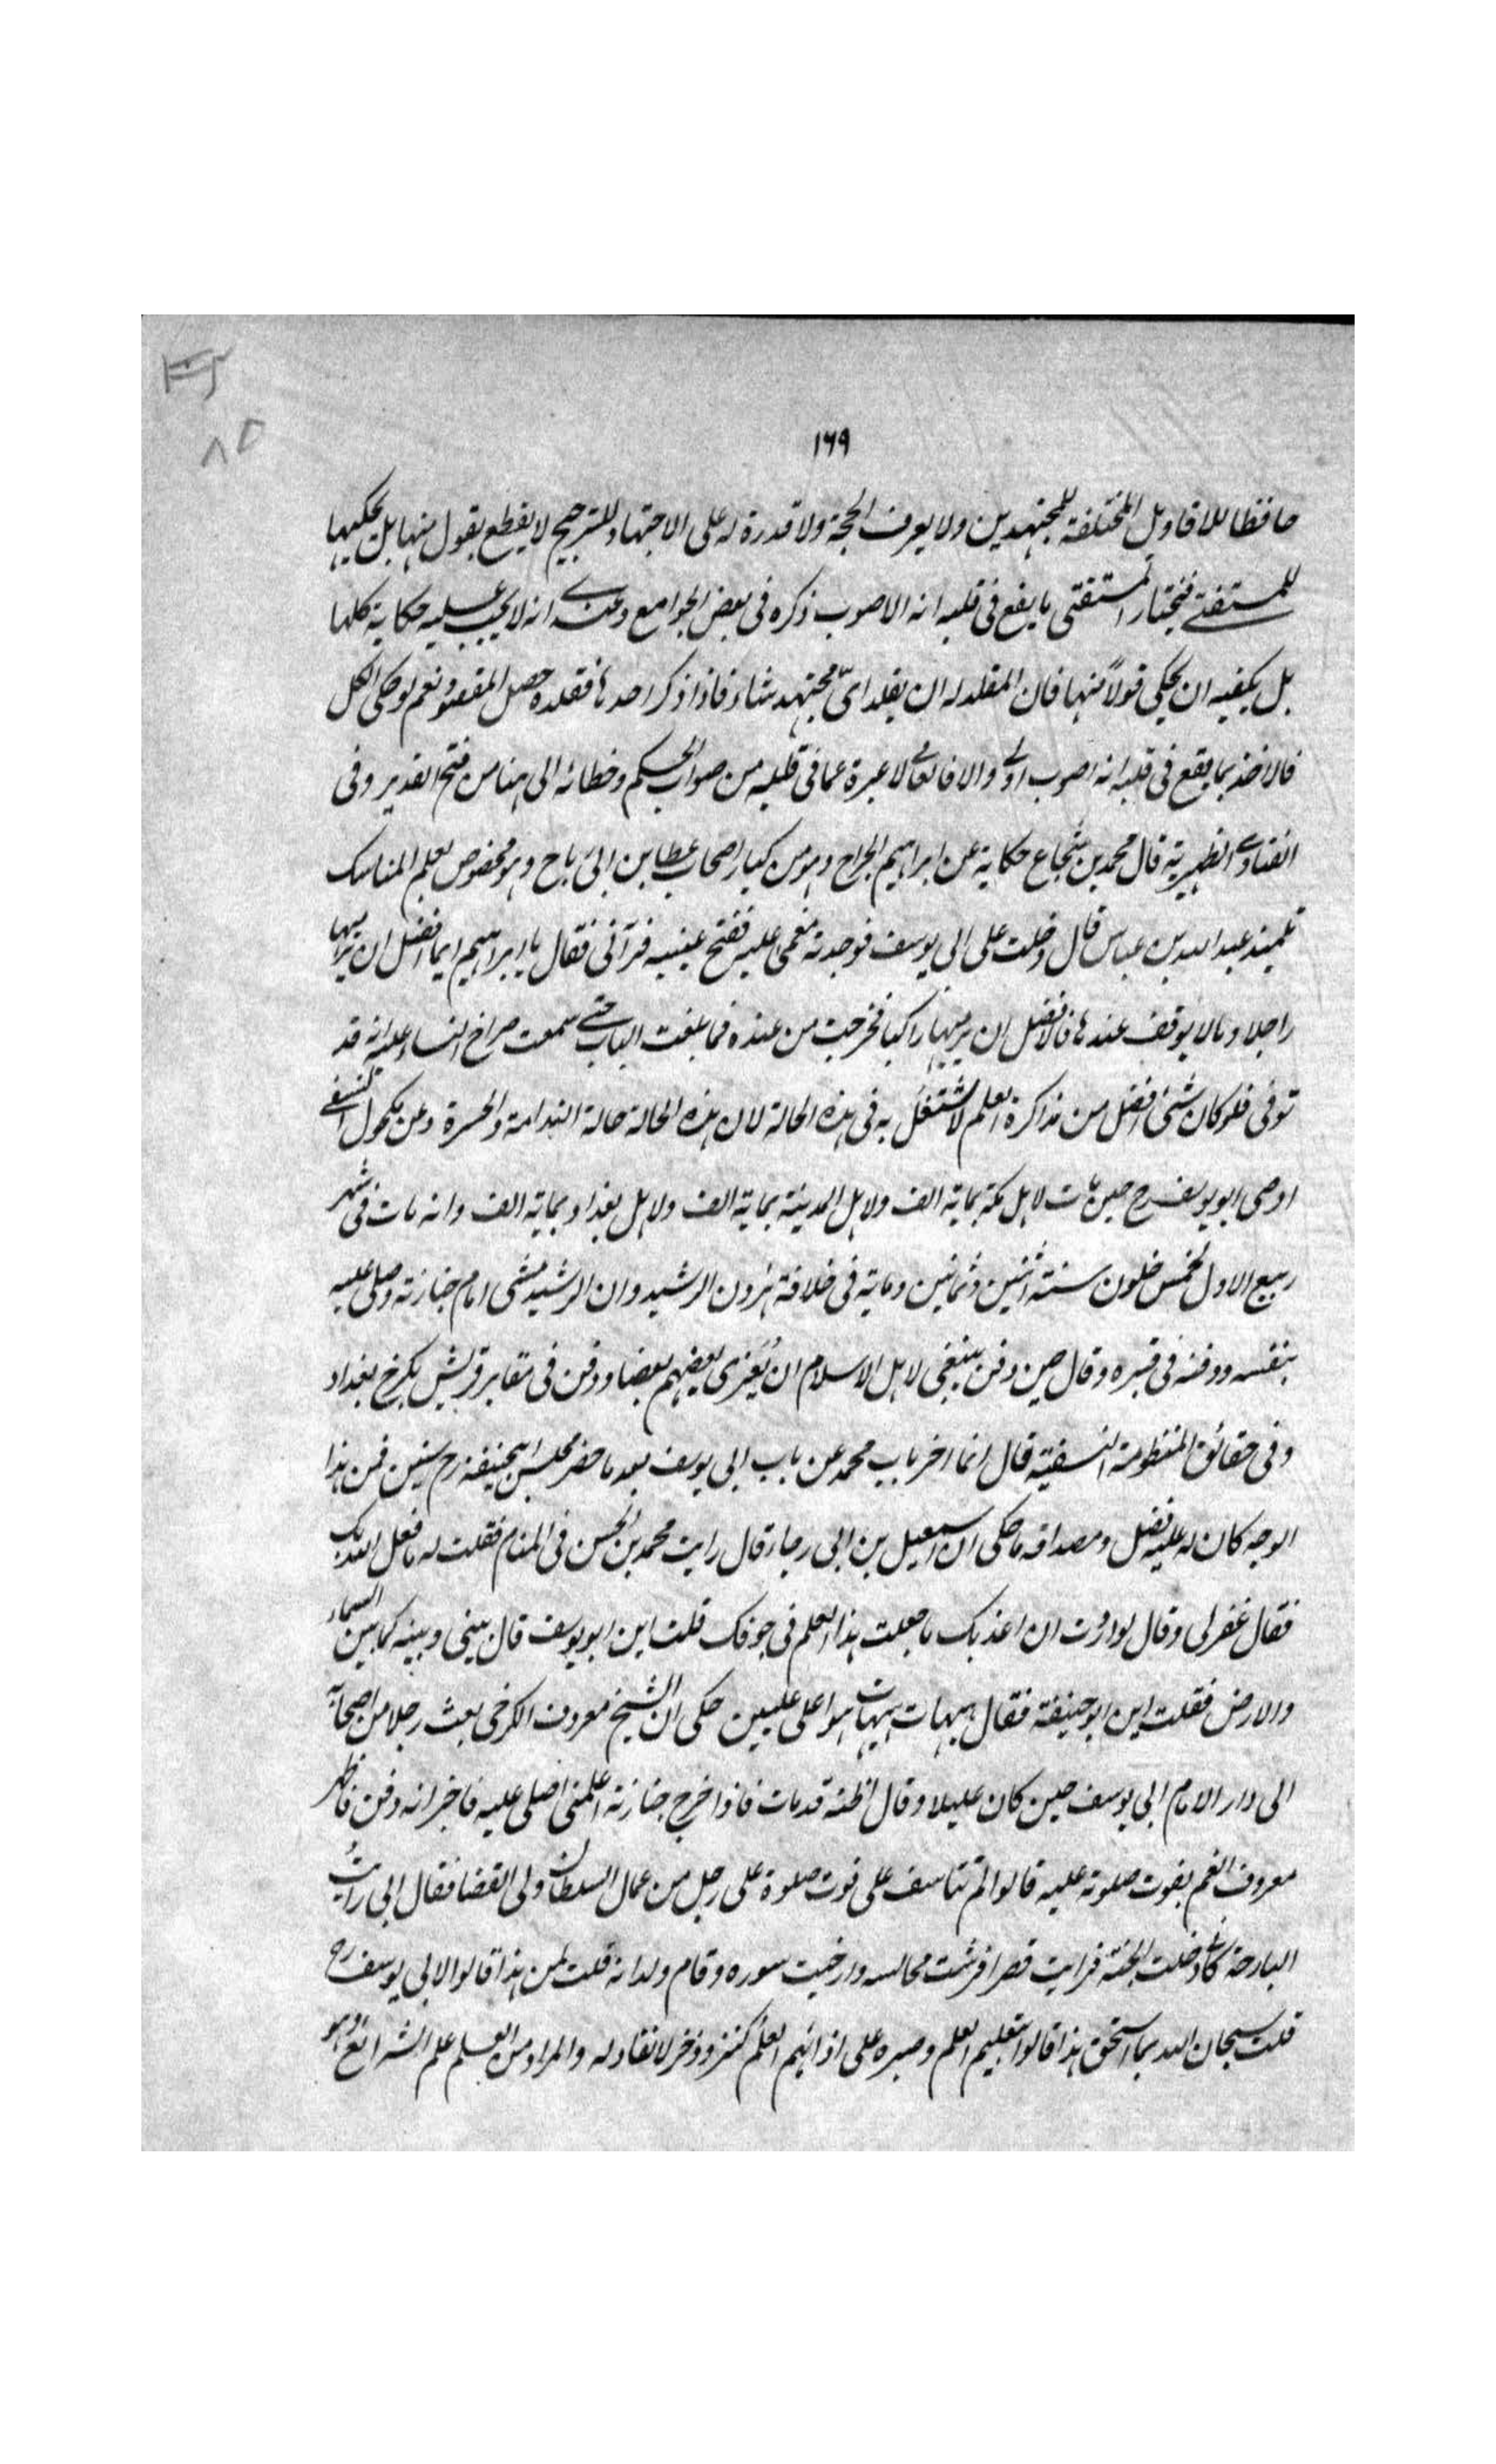 ١٦٩
حافظا للاقاويل المختلفة للمجتهدين ولا يعرف الحجة ولا قدرة له على الاجتهاد للترجيح لا يقطع بقول منها بل يحكيها
للمستفتى فيختار المستفتى ما يقع فى قلبه انه الاصوب ذكره فى بعض الجوامع وعندى انه لا يجب عليه حكاية كلها
بل يكفيه ان يحكى قولاً منها فان المقلد له ان يقلد اىّ مجتهد شاء فاذا ذكر احدها فقلده حصل المقصود نعم لو حكى الكل
فالاخذ بما يقع فى قلبه انه اصوب اولى والا فالعامى لا عبرة عما فى قلبه من صواب الحكم وخطائه الى هنا من فتح القدير وفى
الفتاوى الظهيرية قال محمد بن شجاع حكاية عن ابراهيم الجراح وهو من كبار اصحاب عطا بن ابى رباح وهو مخصوص بعلم المناسك
تلميذ عبد الله بن عباس قال دخلت على ابى يوسف فوجدته مغمى عليه ففتح عينيه فرآنى فقال يا ابراهيم ايما افضل ان يرميها
راجلا وما لا يوقف عندها فالافضل ان يرميها راكبا فخرجت من عنده فما بلغت الباب حتى سمعت صراخ النساء عليه انه قد
توفى فلو كان شئ افضل من مذاكرة العلم لاشتغل به فى هذه الحالة لان هذه الحالة حالة الندامة والحسرة وعن مكحول النسفى
اوصى ابو يوسف رح حين مات لاهل مكة بماية الف ولاهل المدينة بماية الف ولاهل بغداد بماية الف وانه مات فى شهر
ربيع الاول لخمس خلون سنة اثنين وثمانين وماية فى خلافة هرون الرشيد وان الرشيد مشى امام جنازته وصلى عليه
بنفسه ودفنه فى قبره وقال حين دفن ينبغى لاهل الاسلام ان يُعَزى بعضهم بعضا ودفن فى مقابر قريش بكرخ بغداد
وفى حقائق المنظومة النسفية قال انما اخر باب محمد عن باب ابى يوسف بعد ما حضر مجلس ابيحنيفة رح سنين فمن هذا
الوجه كان له عليه فضل ومصداقه ما حكى ان اسمعيل بن ابى رجاء قال رايت محمد بن الحسن فى المنام فقلت له ما فعل الله بك
فقال غفر لى وقال لو اردت ان اعذبك ما جعلت هذا العلم فى جوفك قلت اين ابو يوسف قال بينى وبينه كما بين السماء
والارض فقلت اين ابو حنيفة فقال هيهات هيهات هو اعلى عليين حكى ان الشيخ معروف الكرخى بعث رجلا من اصحابه
الى دار الامام ابى يوسف حين كان عليلا وقال اظنه قد مات فاذا اخرج جنازته اعلمنى اصلى عليه فاخبر انه دفن فاظهر
معروف الغم بفوت صلوته عليه قالوا لم تتاسف على فوت صلوة على رجل من عمال السلطان ولى القضا فقال انى رايتُ
البارحة كانى دخلت الجنة فرايت قصرا فرشت مجالسه وارخيت ستوره وقام ولدانه قلت لمن هذا قالوا لابى يوسف رح
قلت سبحان الله بما استحق هذا قالوا بتعليم العلم وصبره على اذائهم العلم كنز وذخر لا نفاد له والمراد من العلم علم الشرائع وهو